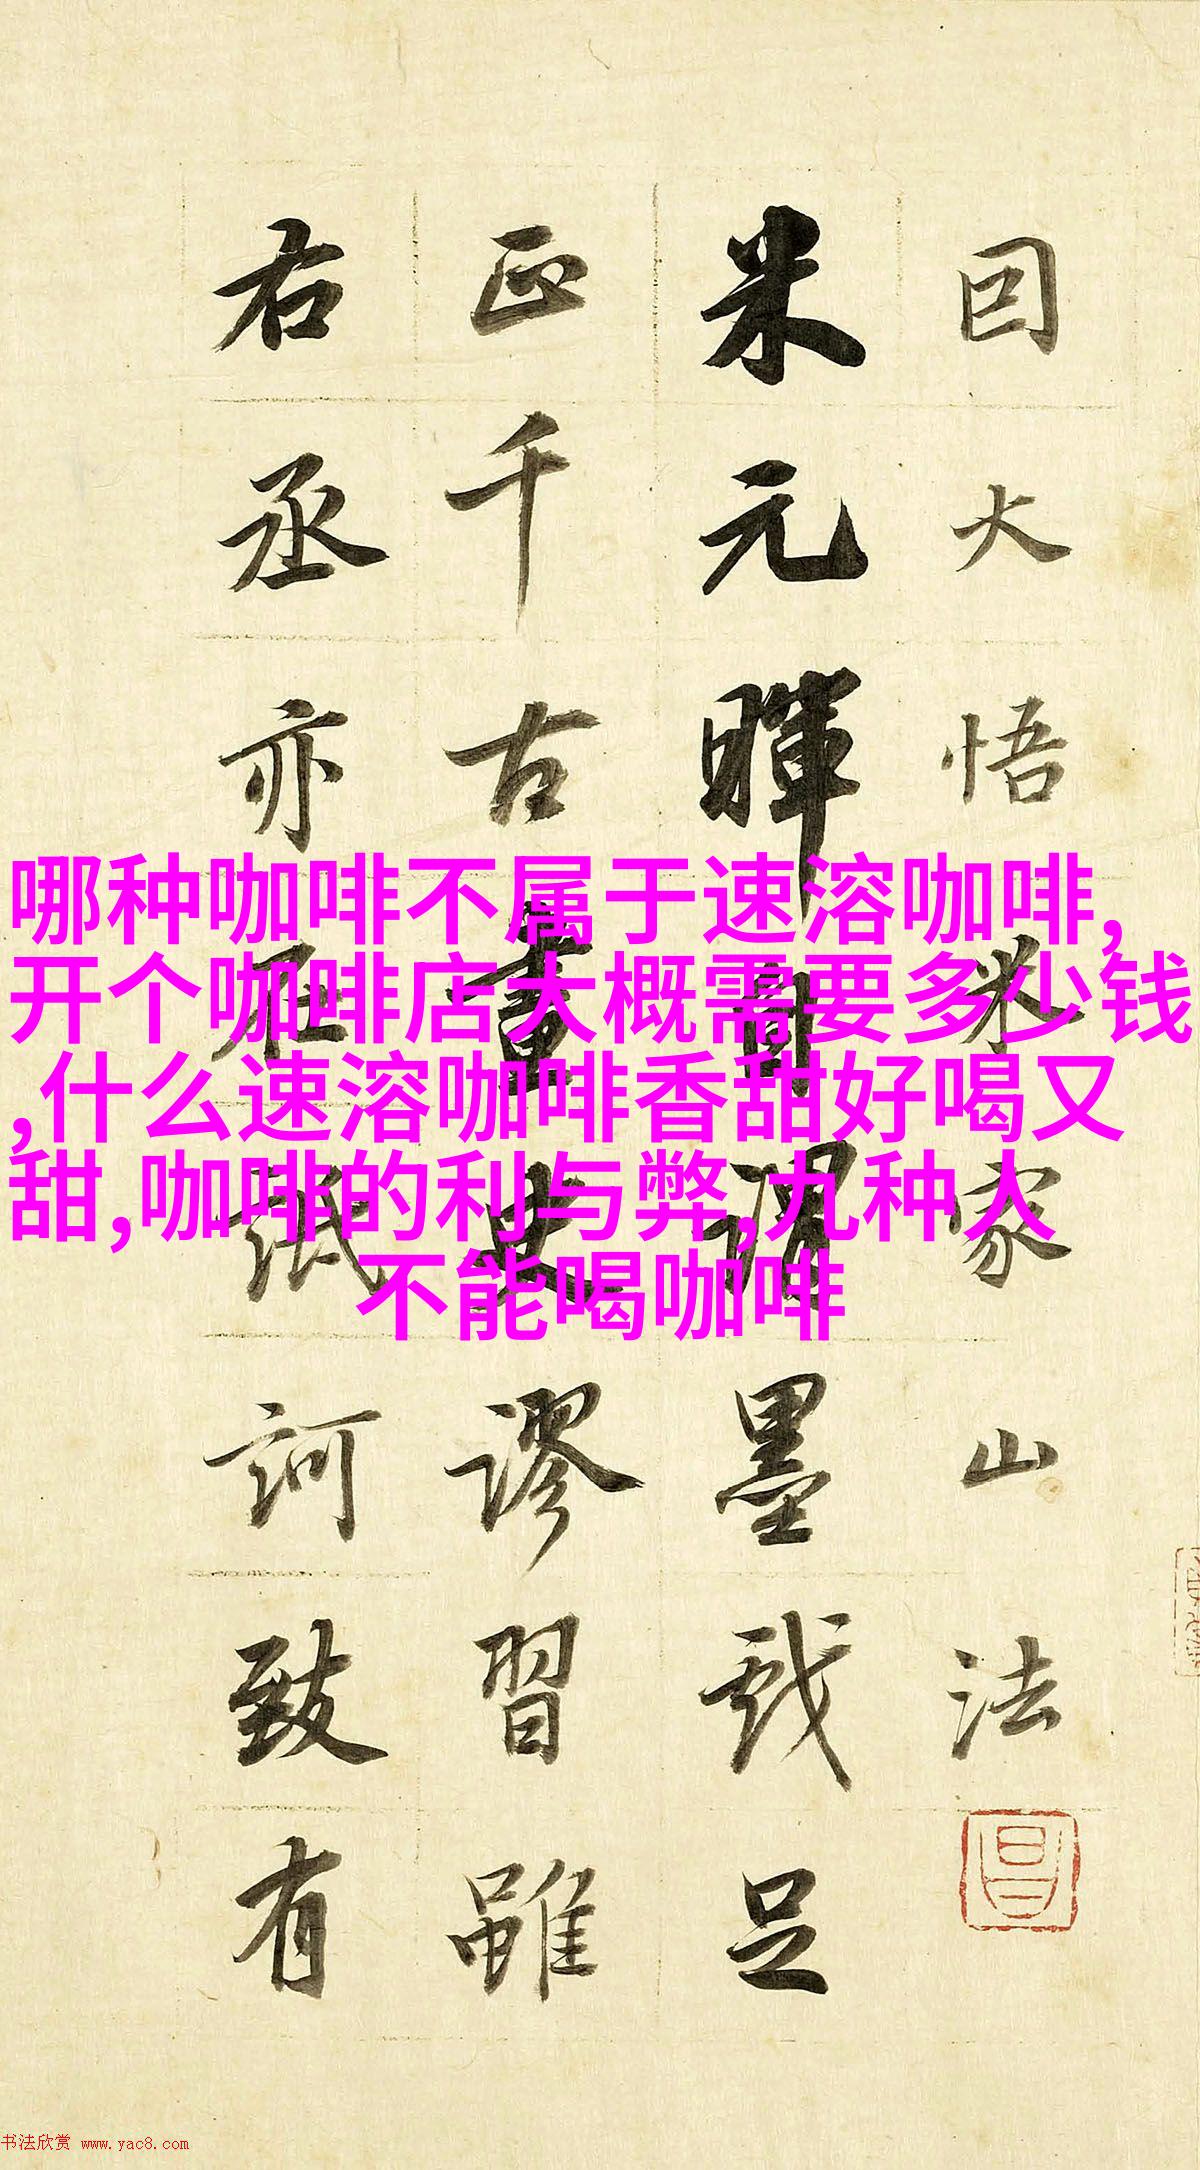 因大悟米家山法
米元暉自謂墨戲足
正千古畫史謬習雖
右丞亦在詆訶致有
哪种咖啡不属于速溶咖啡,
开个咖啡店大概需要多少钱
,什么速溶咖啡香甜好喝又
甜,咖啡的利与弊,九种人
不能喝咖啡
书法欣赏 www.yac8.com